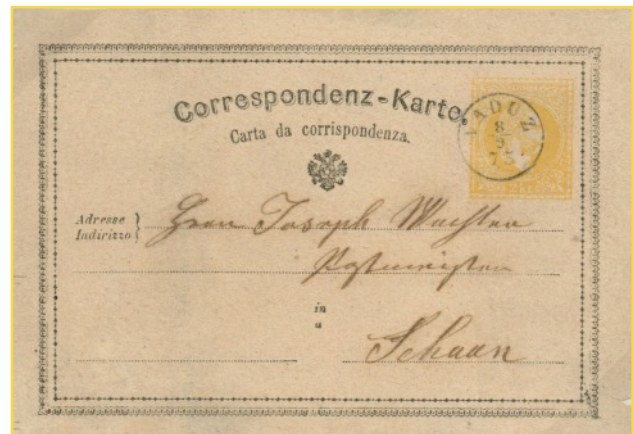 Correspondenz-Karte.
Carta da corrispondenza.
VADUZ
8
9
73
Adresse
Indirizzo
Herrn Joseph Wachter
Postmeister
in
a
Schaan